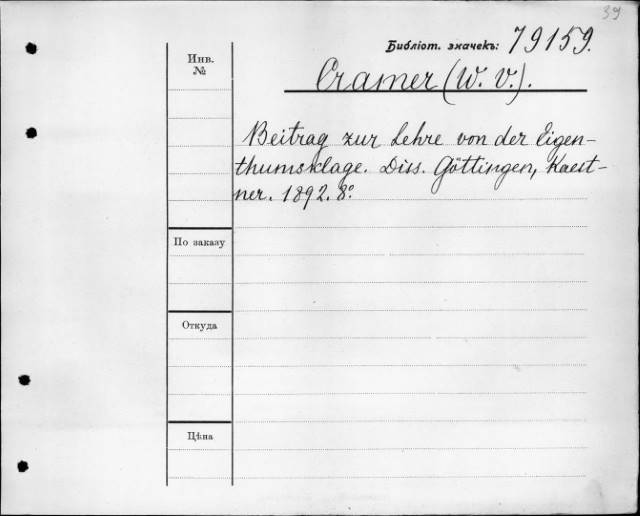 39
Библіот. значекъ: 79159.
Инв. №
Cramer (W. v.).
Beitrag zur Lehre von der Eigen-
thumsklage. Diss. Göttingen, Kaest-
ner. 1892. 8º.
По заказу
Откуда
Цѣна